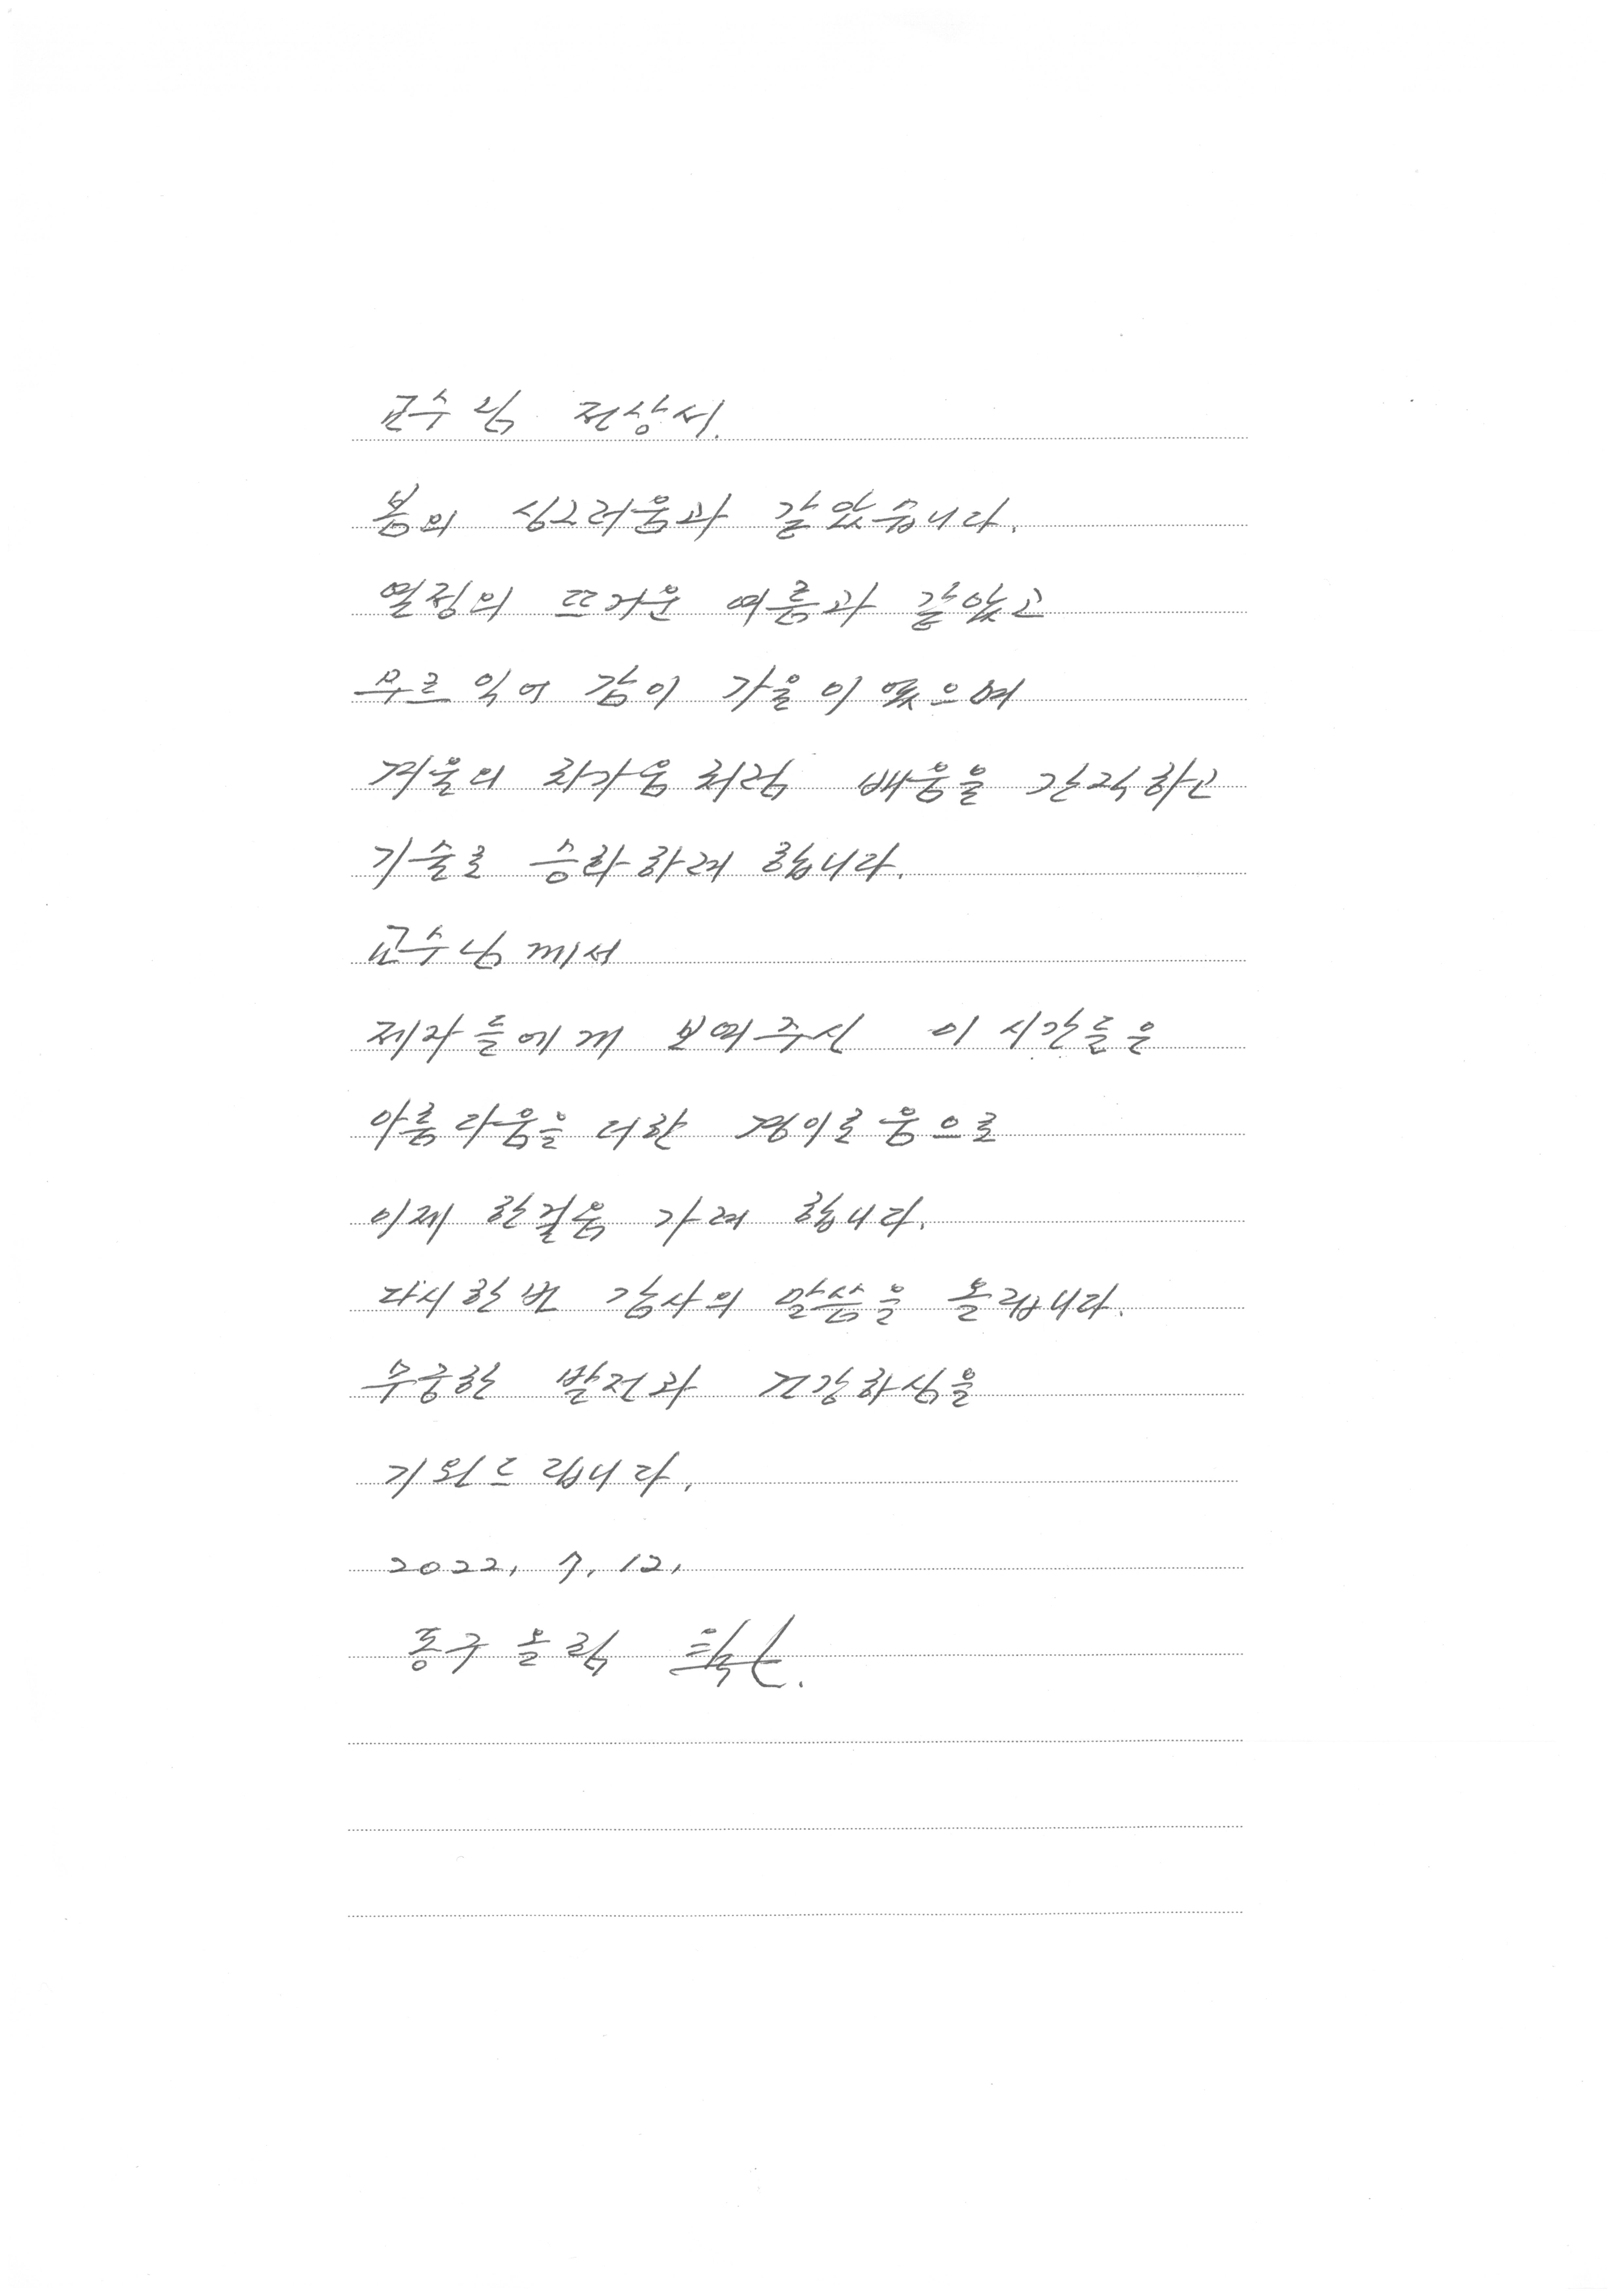 교수님 전상서.
봄의 싱그러움과 같았습니다.
열정의 뜨거운 여름과 같았고
무르익어 감이 가을이였으며
겨울의 차가움처럼 배움을 간직하고
기술로 승화하려 합니다.
교수님께서
제자들에게 보여주신 이 시간들은
아름다움을 더한 경이로움으로
이제 한걸음 가려 합니다.
다시한번 감사의 말씀을 올립니다.
무궁한 발전과 건강하심을
기원드립니다.
2022, 7, 12,
동구 올림